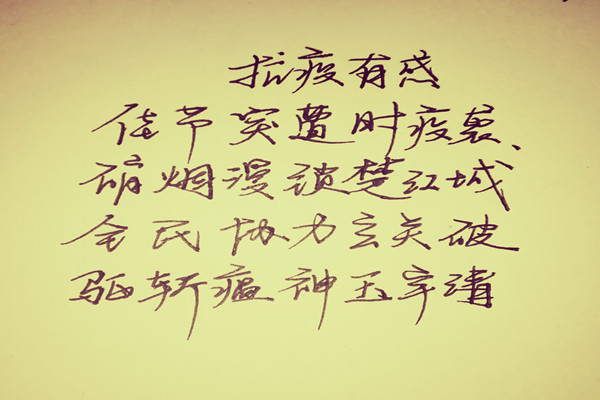 抗疫有感
佳节突遭时疫裹、
硝烟漫锁楚江城
全民协力玄关破
驱斩瘟神玉宇清